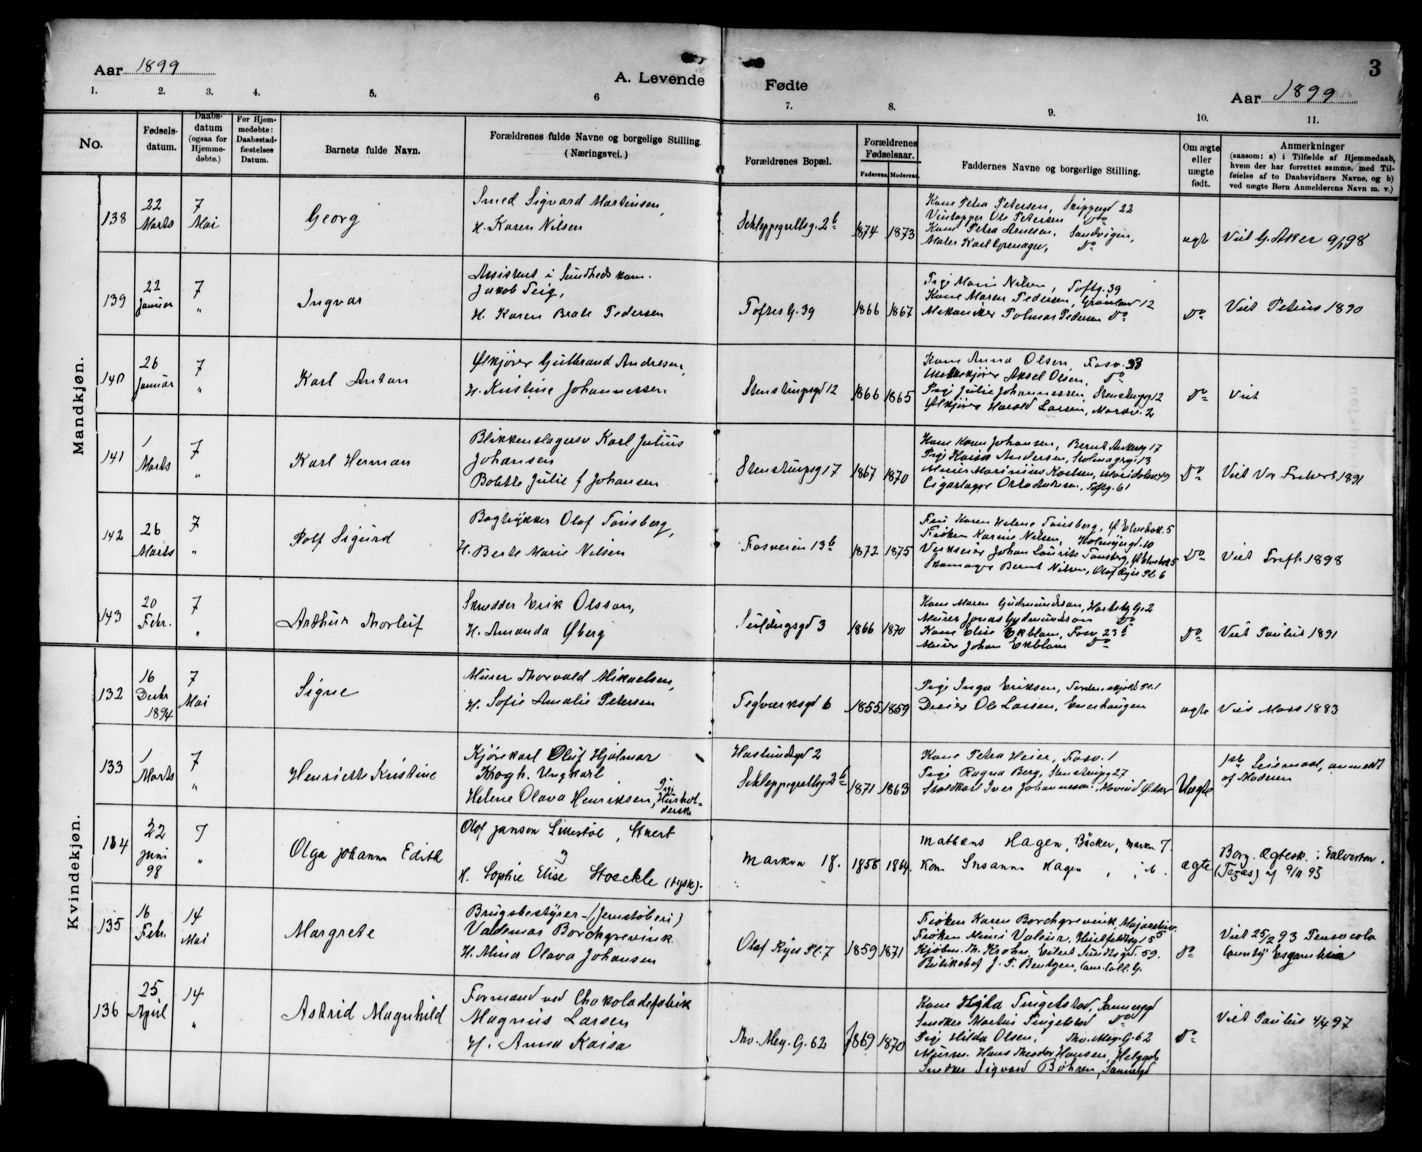 Aar 1899
A. Levende
Fødte
Aar 1899
3
1. 2. 3. 4. 5. 6 7. 8. 9. 10. 11.
No.
Fødsels-
datum.
Daabs-
datum
(ogsaa for
Hjemme-
døbte.)
For Hjem-
medøbte:
Daabsstad-
fæstelses
Datum.
Barnets fulde Navn.
Forældrenes fulde Navne og borgelige Stilling.
(Næringsvei.)
Forældrenes Bopæl.
Forældrenes
Fødselsaar.
Faderens. Moderens.
Faddernes Navne og borgerlige Stilling.
Om ægte
eller
uægte
født.
Anmerkninger
(saasom: a) i Tilfælde af Hjemmedaab,
hvem der har forrettet samme, med Til-
føielse af to Daabsvidners Navne, og b)
ved uægte Børn Anmelderens Navn m. v.)
Mandkjøn.
138
22
Marts
7
Mai
Georg
Smed Sigvard Martinsen,
H. Karen Nilsen
Schleppegrellsg. 2b
1874 1873
Kone Petra Petersen, Skippergd 22
Vintapper Ole Petersen Do
Kone Petra Arnesen, Sandvigen,
Maler Karl Grenager, Do
ægte
Viet G. Aker 9/198
139
22
Januar
7
"
Ingvar
Assistent i Sundhedskom.
Jakob Teig,
H. Karen Brate Pedersen
Toftes G. 39
1866 1867
Pige Marie Nilsen, Toftg. 39
Kone Maren Pedersen, Grønland 12
Mekaniker Tolmar Pedersen Do
Do
Viet Petrus 1890
140
26
Januar
7
"
Karl Anton
Ølkjører Gulbrand Andresen,
H. Kristine Johannessen
Stenstrupgd 12
1866 1865
Kone Anna Olsen, Fosv. 38
Melkekjører Aksel Olsen, Do
Pige Julie Johannessen, Stenstrupg 12
Ølkjører Harald Larsen, Marsv. 2
Do
Viet
141
1
Marts
7
"
Karl Herman
Blikkenslagersv Karl Julius
Johansen
Bolette Julie f Johansen
Stenstrupg 17
1867 1870
Kone Karen Johansen, Bernt Ankersg 17
Pige Karen Andersen, Holmagrg. 13
Murer Marinius Karlsen, Maridalsv. 49
Cigarmager Otto Andersen, Toftg. 61
Do
Viet Vor Frelsers 1891
142
26
Marts
7
"
Rolf Sigurd
Bogtrykker Olaf Tønsberg,
H. Berte Marie Nilsen
Fosveien 13b
1872 1875
Fru Karen Helene Tønsberg, Ø Elvebak. 5
Frøken Karine Nilsen, Holmsgd. 10
Verkseier Johan Laurits Tønsberg, Ø Elvebak 5
Skomager Bernt Nilsen, Olaf Ryes Pl. 6
Do
Viet Trefh. 1898
143
20
Febr.
7
"
Arthur Thorleif
Skrædder Erik Olsson,
H. Amanda Øberg
Seildugsgd 3
1866 1870
Kone Maren Gudmundson, Herslebs G. 2
Murer Jonas Gudmundson Do
Kone Elise Ekblom, Fosv 23b
Murer Johan Ekblom Do
Do
Viet Paulus 1891
Kvindekjøn.
132
16
Decbr
1894
7
Mai
Signe
Murer Thorvald Mikaelsen,
H. Sofie Amalie Petersen
Teglværksgd 6
1855 1859
Pige Inga Eriksen, Tordenskjolds Pl. 1
Dreier Ole Larsen, Enerhaugen
ægte
Viet Moss 1883
133
1
Marts
7
"
Henriette Kristine
Kjørekarl Oluf Hjalmar
Krogh. Ungkarl
Helene Olava Henriksen, Pige
Haslundsgd 2
Schleppegrellsg 2b
1871 1863
Kone Petra Heier, Fosv. 1
Pige Ragna Berg, Sandstrupg 27
Staldkarl Iver Johannessen, Hovind Ø. Aker
Uægte
1ste Leiermaal, anmeldt
af Moderen
134
22
Juni
98
7
"
Olga Johanna Edith
Olof Janson Silkestøl, Snert
og
H. Sophie Elise Stoeckle (tysk).
Markvn 18.
1858 1864
Mathæus Hagen, Bäcker, Markv. 7
Kone Susanna Hagen , , 6.
ægte
Borg. Ægtesk. i Galveston,
(Texas) 5/11 95
135
16
Febr.
14
Mai
Margrete
Brugsbestyrer (Jernstøberi)
Valdemar Borchgrevink
H. Mina Olava Johansen
Olaf Ryes Pl. 7
1859 1871
Frøken Karen Borchgrevink, Majorstuv.
Frøken Mimi Valeur, Huitfeldtsg 15
Kjøbm. Th. Krohn, Eilert Sundtsgd. 59.
Bilikehof J. F. Bentzen, Cam. Coll. G.
Do
Viet 25/2 93 Pensacola
County Esgambia
136
25
April
14
"
Astrid Magnhild
Formand ved Chokoladefabrik
Magnus Larsen
H. Anna Kassa
Thv. Mey. G. 62
1869 1870
Kone Hilda Tingelstad, Sannergd
Snedker Martin Tingelstad Do
Pige Hilda Olsen, Thv. Mey. G. 62
Murm. Hans Theodor Hansen, Helggd.
Snedker Sigvard Böhren, Sannergd
Do
Viet Paulus 4/4 97